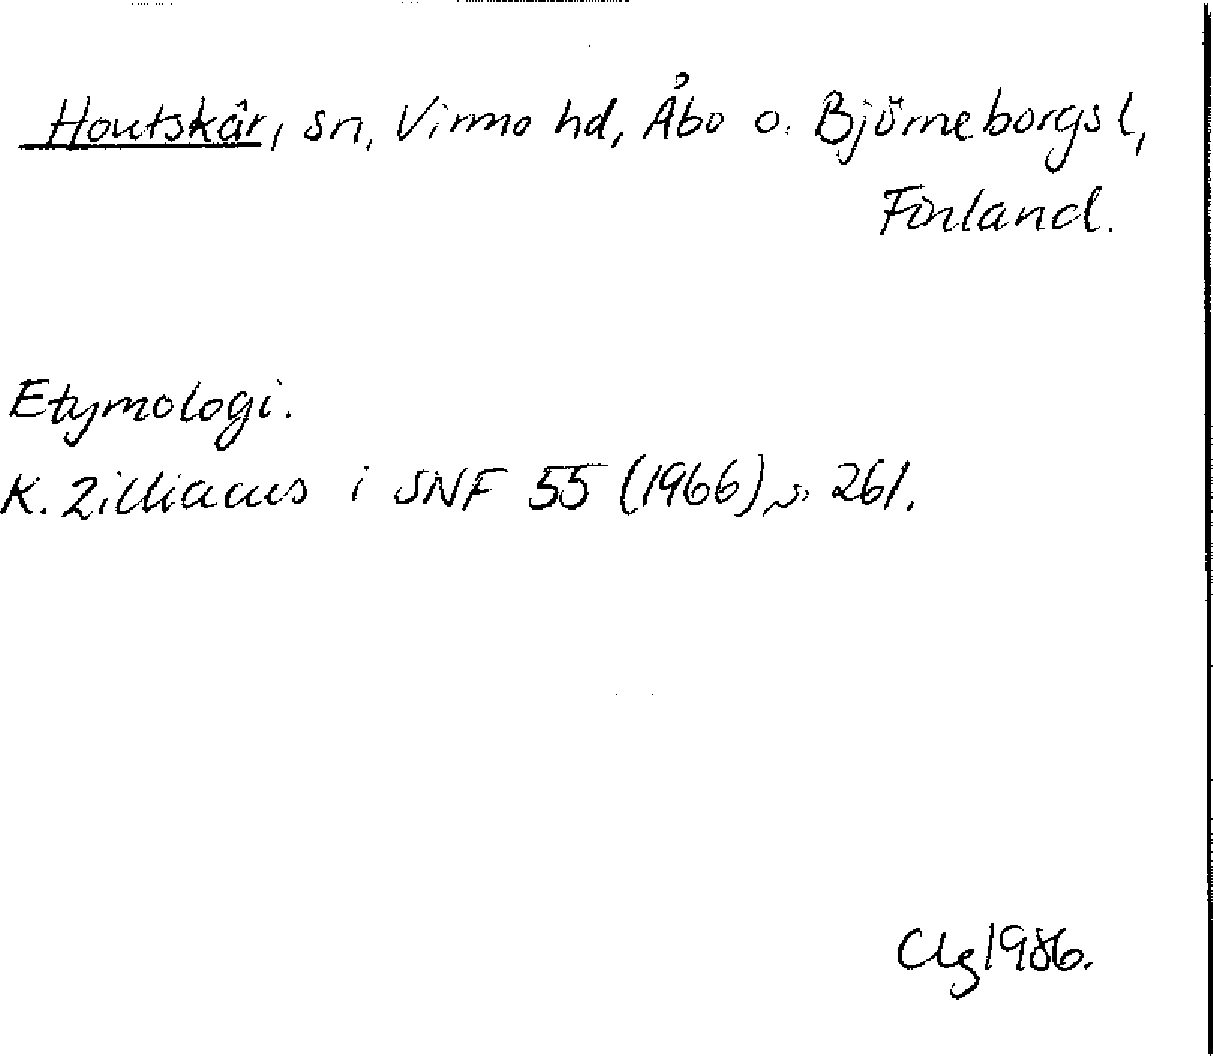 Houtskär, sn, Virmo hd, Åbo o. Björneborgs l,
Finland.
Etymologi.
K. Zilliacus i SNF 55 (1966), s. 261.
Clg 1986.